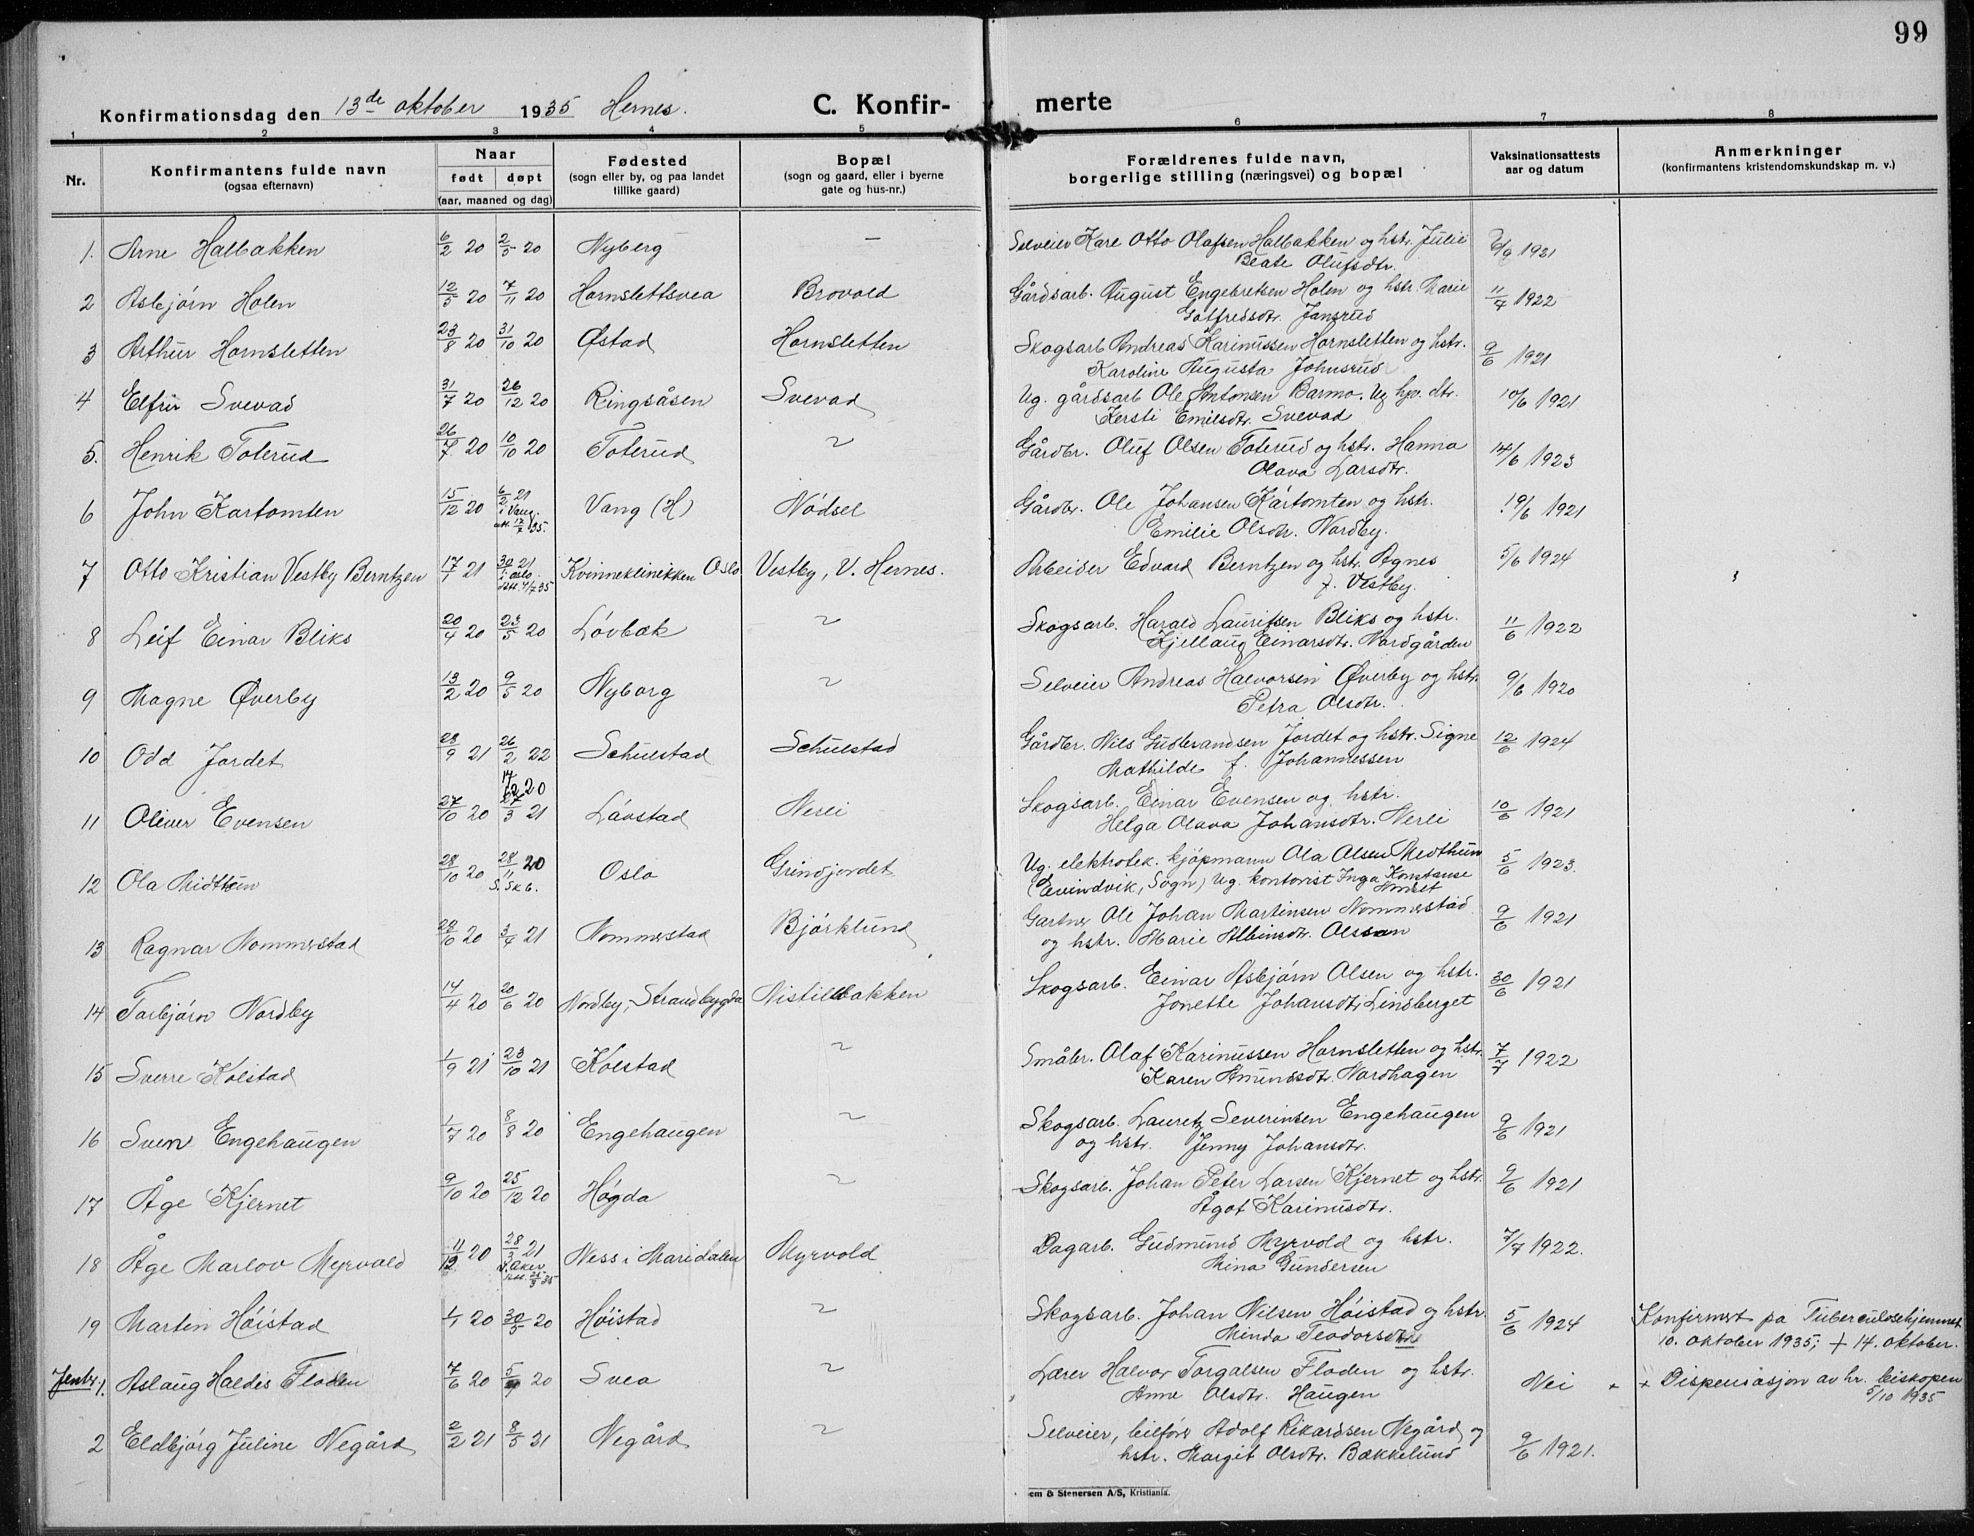 99
Konfirmationsdag den 13de oktober 1935 Hernes. C. Konfir- merte
1 2 3 4 5 6 7 8
Nr. Konfirmantens fulde navn (ogsaa efternavn) Naar født døpt (aar, maaned og dag) Fødested (sogn eller by, og paa landet tillike gaard) Bopæl (sogn og gaard, eller i byerne gate og hus-nr.) Forældrenes fulde navn, borgerlige stilling (næringsvei) og bopæl Vaksinationsattests aar og datum Anmerkninger (konfirmantens kristendomskundskap m. v.)
1. Arne Halbakken 6/2 20 2/5 20 Nyberg – Selveier Kare Otto Olafsen Halbakken og hstr. Julie 1921
Beate Olufsdtr.
2 Asbjørn Holen 12/5 20 7/11 20 Hornslettsvea Brovold Gårdsarb. August Engebretsen Holen og hstr. Marie 1922
Gotfredsdtr. Jansrud
3 Arthur Hornsletten 23/8 20 31/10 20 Østad Hornsletten Skogsarb Andreas Karinussen Hornsletten og hstr. 9/6 1921
Karoline Augusta Johnsrud
4 Elfrii Svevad 31/7 20 26/12 20 Ringsåsen Svevad Ug. gårdsarb Ole Antonsen Barmo. Ug hjv. dtr. 10/6 1921
Kersti Emilsdtr. Svevad
5. Henrik Toterud 26/7 20 10/10 20 Toterud ~ Gårdbr. Oluf Olsen Toterud og hstr. Hanna 14/6 1923
Olava Larsdtr.
6 John Kartomten 15/12 20 6/2 21 i Vang. att. 17/7 35. Vang (H) Nødsel Gårdbr. Ole Johansen Kártomten og hstr. 19/6 1921
Emilie Olsdtr. Nordby.
7 Otto Kristian Vestby Berntzen 17/1 21 21 i Oslo Kvinneklinikken Oslo Vestby, V. Hernes. Arbeider Edvard Berntzen og hstr. Agnes 5/6 1924
f. Vestby.
8 Leif Einar Bliks 20/4 20 23/5 20 Løvbæk ~ Skogsarb. Harald Lauritsen Bliks og hstr. 11/6 1922
Kjellaug Einarsdtr. Nordgården
9 Magne Øverby 13/2 20 9/5 20 Nyborg ~ Selveier Andreas Halvorsen Øverby og hstr. 9/6 1920
Petra Olsdtr.
10 Odd Jordet 28/9 21 26/2 22 Schulstad Schulstad Gårdbr. Nils Gudbrandsen Jordet og hstr. Signe 12/6 1924
Mathilde f. Johannessen
11 Oliver Evensen 27/10 20 27/3 21 Løvstad Nerli Skogsarb. Einar Evensen og hstr. 10/6 1921
Helga Olava Johansdtr. Nerli
12 Ola Midthun 28/10 20 28/11 20 Oslo Grindjordet Ug. elektrotek. kjøpmann Ola Olsen Medthun 5/6 1923.
(Evindvik, Sogn) Ug. kontorist Inga Konstanse
13 Ragnar Nommerstad 28/10 20 3/4 21 Nommerstad Bjørklund Gartner Ole Johan Martinsen Nommerstad 9/6 1921
og hstr. Marie Albinsdtr. Olsson
14 Torbjørn Nordby 14/4 20 20/6 20 Nordby, Strandbygda Nistilbakken Skogsarb. Einar Asbjørn Olsen og hstr. 30/6 1921
Jonette Johansdtr. Lindberget
15 Sverre Kolstad 1/9 21 23/10 21 Kolstad ~ Småbr. Olaf Karinussen Hornsletten og hstr. 7/7 1922
Karen Amundsdtr. Nordhagen
16 Sven Engehaugen 1/7 20 8/8 20 Engehaugen ~ Skogsarb. Lauretz Severinsen Engehaugen 9/6 1921
og hstr. Jenny Johansdtr.
17 Åge Kjernet 9/10 20 25/12 20 Høgda ~ Skogsarb. Johan Peter Larsen Kjernet og hstr. 9/6 1921
Ågot Karinusdtr.
18 Åge Marlov Myrvold 11/12 20 28/3 21 V. Aker Ness i Maridalen Myrvold Dagarb. Gudmund Myrvold og hstr. 7/7 1922.
Mina Gundersen
19 Martin Høistad 1/1 20 30/5 20 Høistad ~ Skogsarb. Johan Nilsen Høistad og hstr. 5/6 1924 Konfirmert på Tuberculosehjemmet
Minda Teodorsdtr 10. oktober 1935; + 14. oktober.
Jenter. 1. Aslaug Haldis Floden 7/6 20 20 Svea ~ Lærer Halvor Torgalsen Floden og hstr. Nei + Dispensasjon av hr. biskopen
Anne Olsdtr. Haugen 5/10 1935
2 Eldbjørg Juline Negård 2/2 21 8/5 21 Negård ~ Selveier, bilfører Adolf Rikardsen Negård og 9/6 1921.
hstr. Margit Olsdtr. Bækkelund
em & Stenersen A/S, Kristiania.